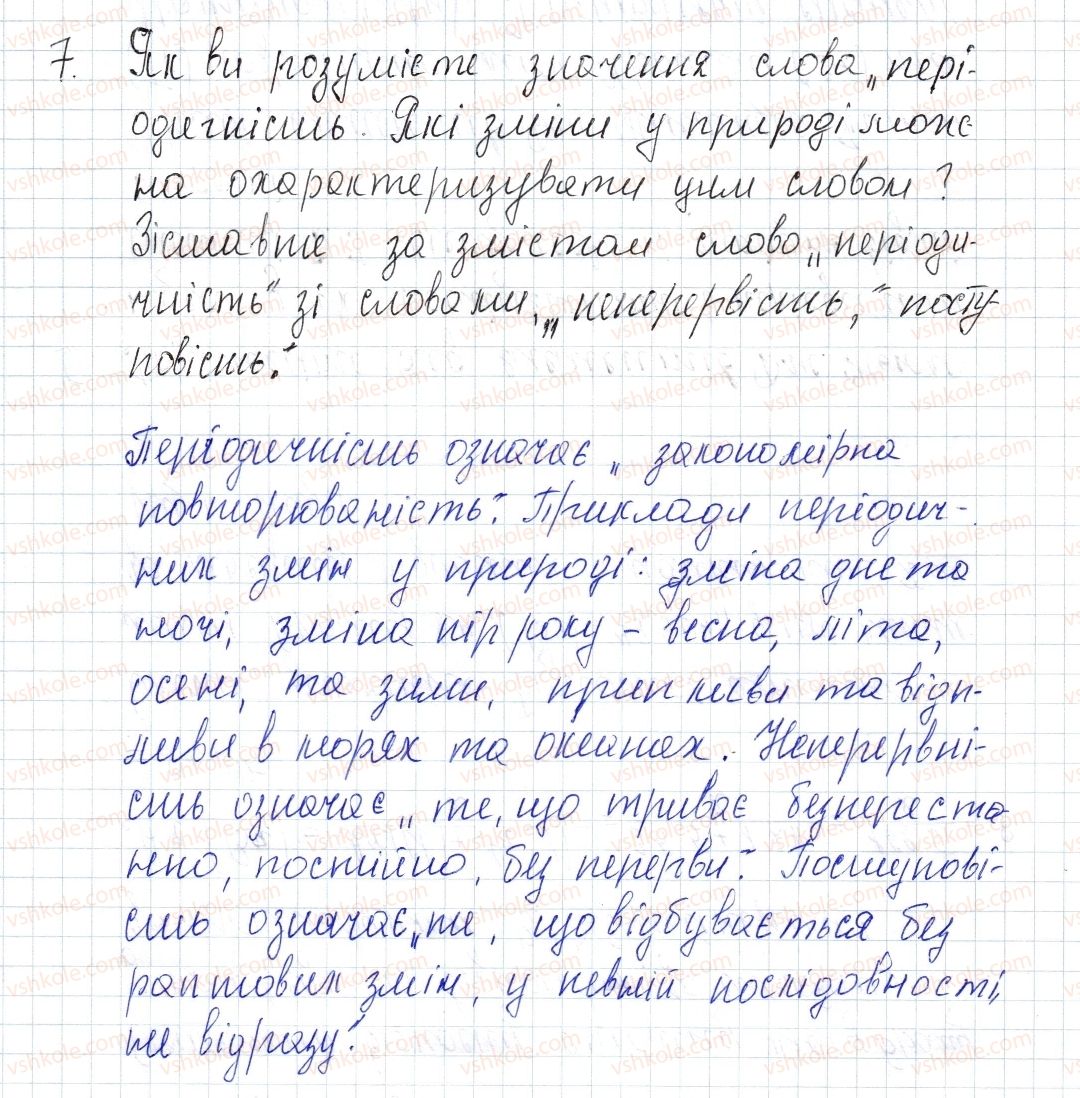 7. Як ви розумієте значення слова „пері-
одичність. Які зміни у природі мож
на охарактеризувати цим словом?
Зіставте за змістом слово „періоди-
чність“ зі словами, „неперервість,“ посту
повість.“
Періодичність означає „закономірна
повторюваність“. Приклади періодич-
них змін у природі: зміна дне та
ночі, зміна пір року – весна, літа,
осені, та зими, припливи та відп-
ливи в морях та океанах. Неперервні-
сть означає „те, що триває безпереста
нно, постійно, без перерви“. Поступові-
сть означає „те, що відбувається без
раптових змін, у певній послідовності,
не відразу“.